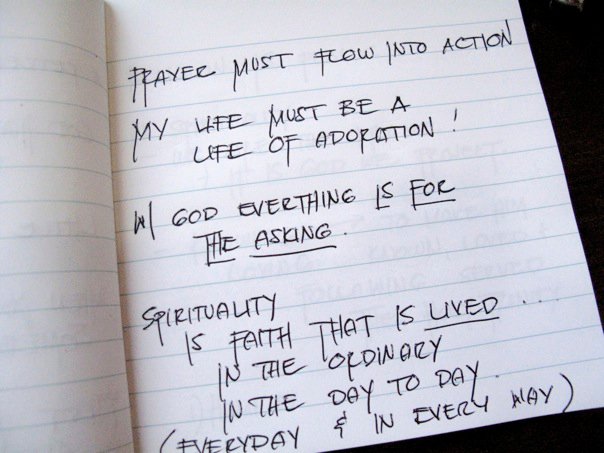 PRAYER MUST FLOW INTO ACTION
MY LIFE MUST BE A
LIFE OF ADORATION!
W/ GOD EVERTHING IS FOR
THE ASKING.
SPIRITUALITY
IS FAITH THAT IS LIVED...
IN THE ORDINARY
IN THE DAY TO DAY.
(EVERYDAY & IN EVERY WAY)